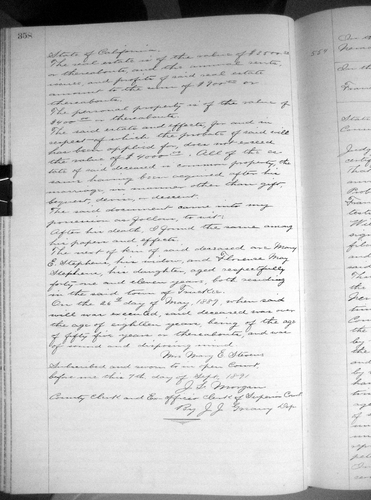 358
State of California.
The real estate is of the value of $2500
or thereabouts, and the annual rents
issues, and profits of said real estate
amount to the sum of $900 or
thereabouts.
The personal property is of the value of
$400 or thereabouts.
The said estate and effects, for and in
respect of which the probate of said will
has been applied for, does not exceed
the value of $4000. All of the es
tate of said deceased is common property, the
same having been acquired after his
marriage, in manner other than gift,
bequest, devise, or descent.
The said document came into my
possession as follows, to wit:
After his death, I found the same among
his papers and effects.
The next of kin of said deceased are Mary
E Stephens, his widow, and Florence May
Stephens, his daughter, aged respectfully
forty one and eleven years, both residing
in the said town of Truckee.
On the 25th day of May, 1889, when said
will was executed, said deceased was over
the age of eighteen years, being of the age
of fifty five years or thereabouts, and was
of sound and disposing mind.
Mrs Mary E. Stevens
Subscribed and sworn to in open Court,
before me this 7th day of Sept 1891
J. L. Morgan
County Clerk and Ex-officio Clerk of Superior Court
By J. J. Dep
559
In the
State